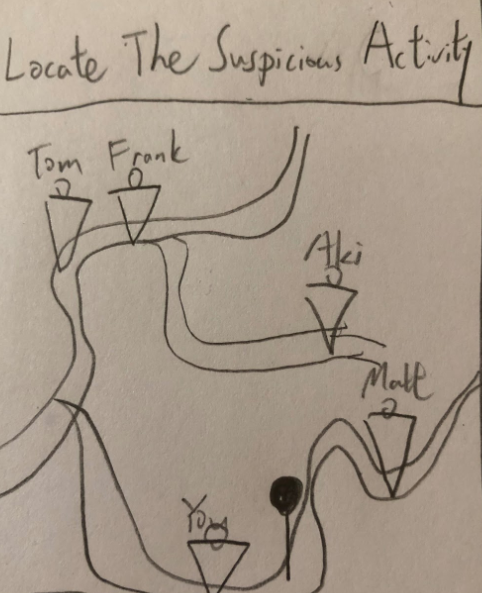 Locate The Suspicious Activity
Tom Frank
Aki
Matt
You